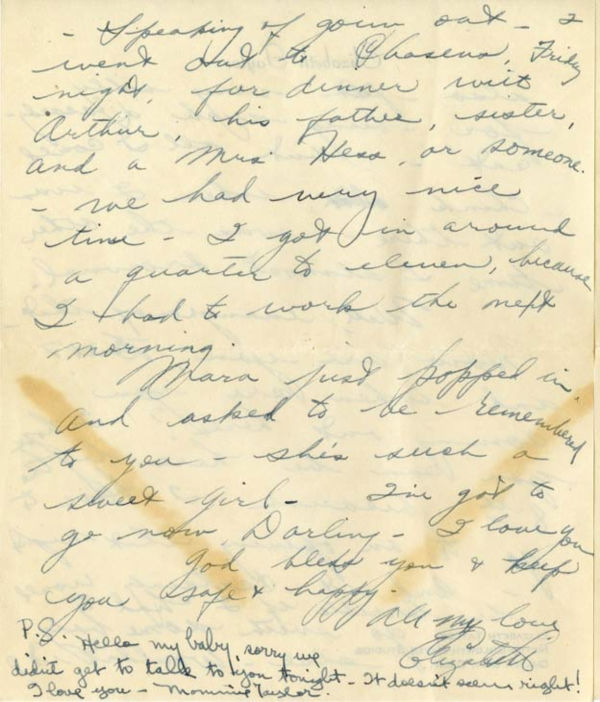 - Speaking of goin out - I
went out to Chasens, Friday
night, for dinner with
Arthur, his father, sister,
and a Mrs. Hess, or someone.
- we had very nice
time - I got in around
a quarter to eleven, because
I had to work the next
morning.
Mara just popped in
and asked to be remembered
to you - she's such a
sweet girl - I've got to
go now, Darling - I love you
god bless you & keep
you safe & happy.
All my love
Elizabeth
P.S. Hello my baby, sorry we
didn't get to talk to you tonight - It doesn't seem right!
I love you - Mommie Taylor.